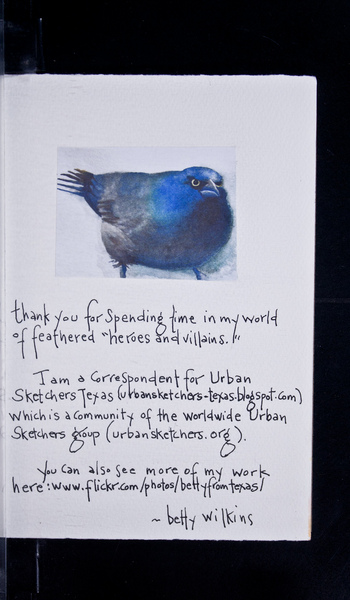 thank you for spending time in my world
of feathered "heroes and villains."
I am a Correspondent for Urban
Sketchers Texas (urbansketchers-texas.blogspot.com)
which is a community of the worldwide Urban
Sketchers group (urbansketchers.org).
you can also see more of my work
here: www.flickr.com/photos/bettyfromtexas/
~ betty wilkins